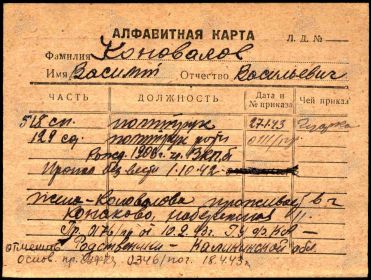 АЛФАВИТНАЯ КАРТА
Л. Д. №
Фамилия Коновалов
Имя Василий Отчество Васильевич
ЧАСТЬ ДОЛЖНОСТЬ Дата и № приказа Чей приказ
518 сп. политрук 27.1.43
129 сд политрук роты
Рожд. 1908 г. чл. ВКП.б
Пропал без вести 1.10.42
Жена - Коновалова проживает в г
Конаково, набережная
от 10.2.43г.
отметка Родственники - Калининской обл
Основ. пр. 0346/пог. 18.4.43г.